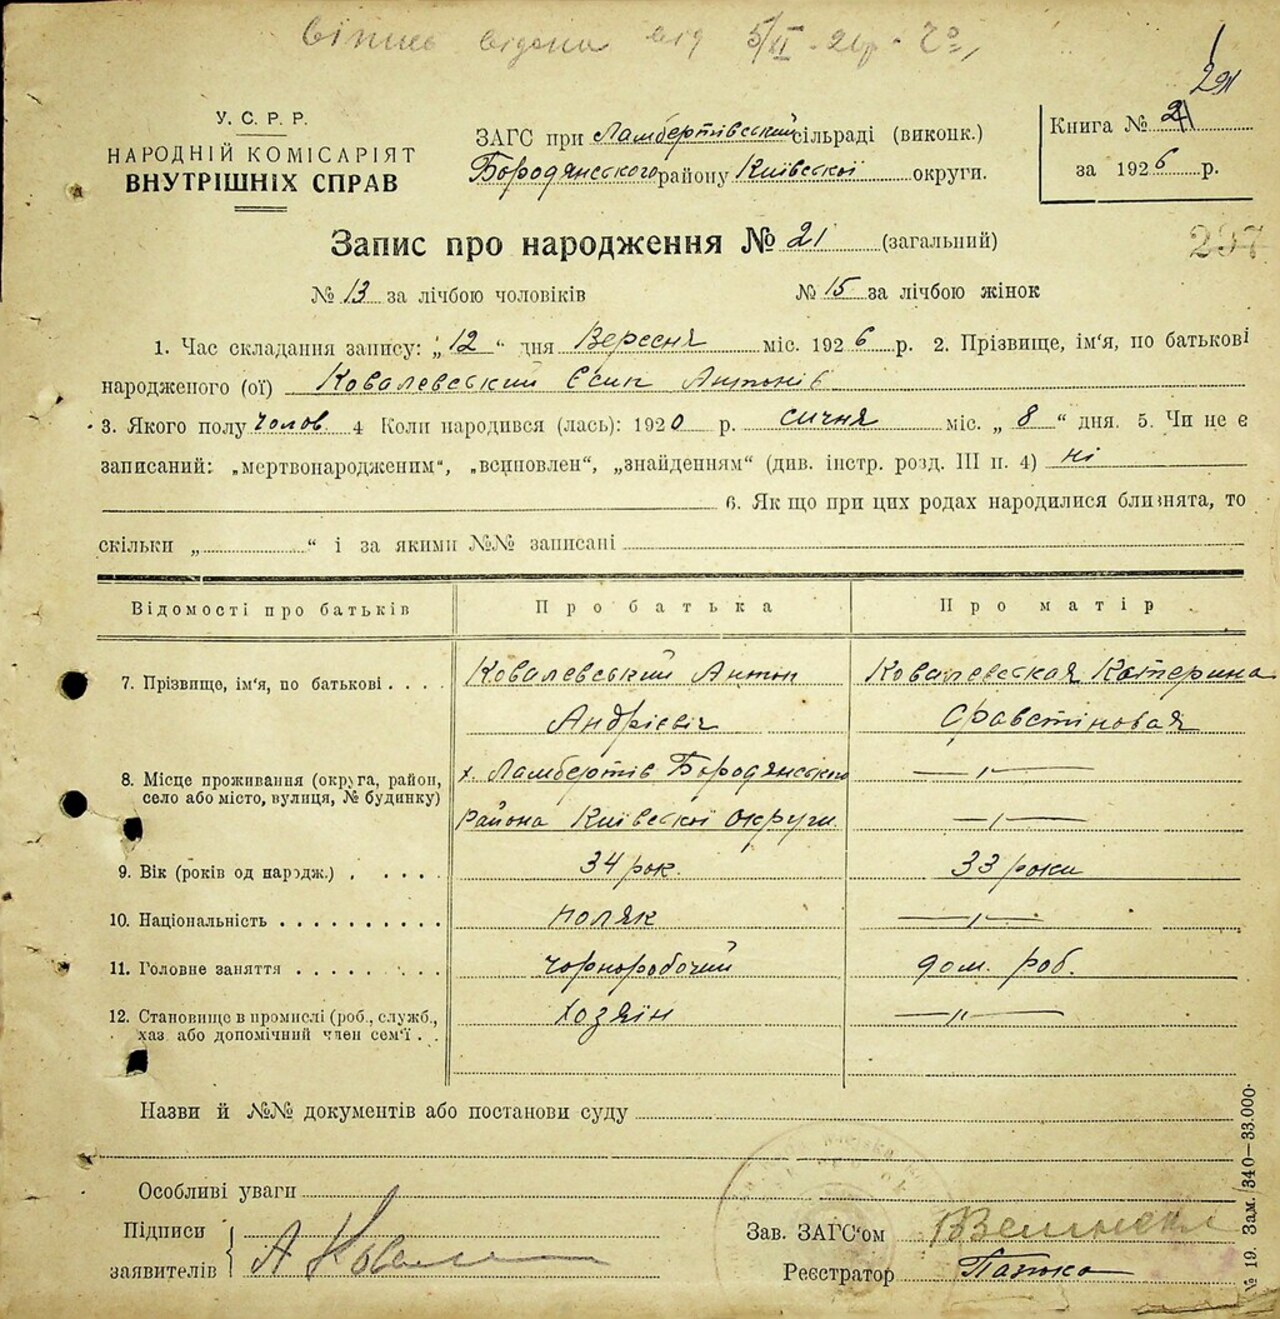 Віпись відана від 5/XI - 26р.
29
У. С. Р. Р.
НАРОДНІЙ КОМІСАРІЯТ
ВНУТРІШНІХ СПРАВ
ЗАГС при Ламбертівський сільраді (виконк.)
Бородянського району Київскої округи.
Книга № 2
за 1926 р.
Запис про народження № 21 (загальний)
297
№ 13 за лічбою чоловіків № 15 за лічбою жінок
1. Час складання запису: „12“ дня Вересня міс. 1926 р. 2. Прізвище, ім'я, по батькові
народженого (ої) Ковалевський Єсип Антонів
3. Якого полу чолов. 4 Коли народився (лась): 1920 р. сичня міс. „8“ дня. 5. Чи не є
записаний: „мертвонародженим“, „всиновлен“, „знайденням“ (див. інстр. розд. III п. 4) ні
6. Як що при цих родах народилися близнята, то
скільки „ “ і за якими №№ записані
Відомості про батьків Про батька Про матір
7. Прізвище, ім'я, по батькові . . . . Ковалевський Антон Ковалевская Катерина
Андрієвіч
8. Місце проживання (округа, район, х. Ламбертів Бородянського —〃—
село або місто, вулиця, № будинку) района Київскої Округи —〃—
9. Вік (років од народж.) . . . . . 34 рок. 33 роки
10. Національність . . . . . . . . . . поляк —〃—
11. Головне заняття . . . . . . . . . чорноробочий дом. роб.
12. Становище в промислі (роб., служб., хозяїн —〃—
хаз або допомічний член сем'ї . .
Назви й №№ документів або постанови суду
Особливі уваги
Підписи
заявителів А Ковале
Зав. ЗАГС'ом
Реєстратор
№ 19. Зам. 340—33.000.